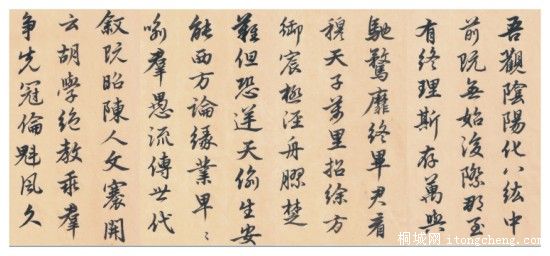 吾觀陰陽化八紘中
前既無始後際那至
有終理斯存萬與
馳騖靡終畢君看
穆天子萬里招徐方
御宸極涇舟膠楚
難但恐逆天偷生安
能西方論緣業卑〻
喻羣愚流傳世代
叙既昭陳人文褰開
云胡學絕教乖羣
爭先冠倫魁風久
桐城网 itongcheng.com